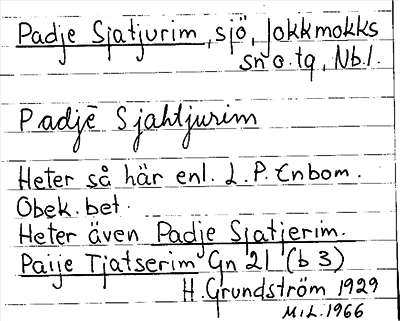 Padje Sjatjurim, sjö, Jokkmokks
sn o. tg, Nb.l.
Padjē Sjahtjurim
Heter så här enl. L.P. Enbom.
Obek. bet.
Heter även Padje Sjatjerim.
Paije Tjatserim Gn 21 (b 3)
H. Grundström 1929
M.L. 1966